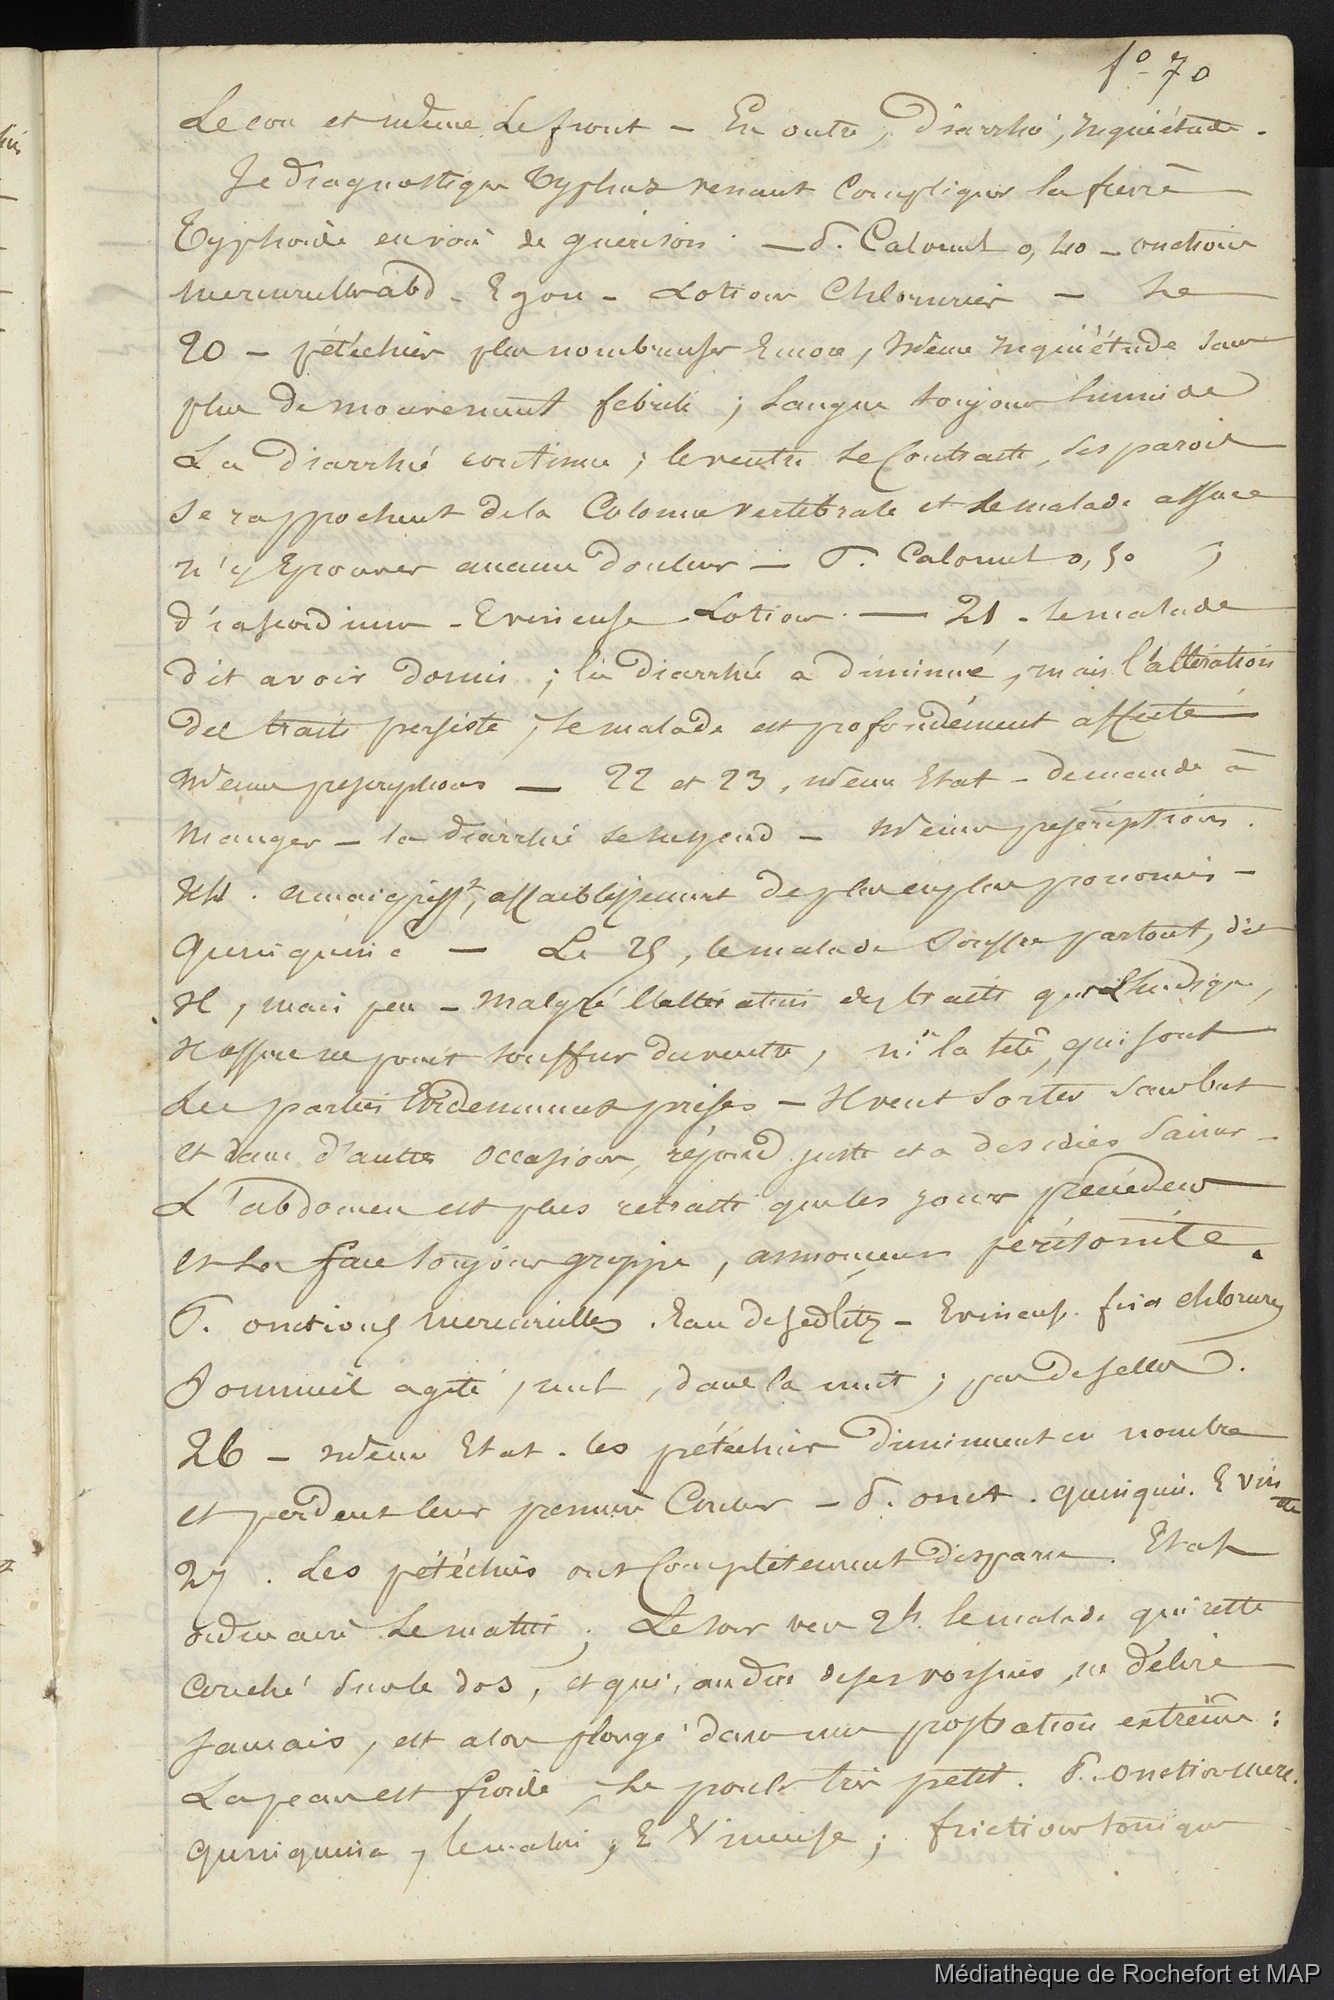 fo 70
Le cou et même le front – En outre, diarrhé, inquiétude.
Je diagnostique Typhus venant compliquer la fièvre
Typhoïde en voie de guérison. – P. Calomel 0,40 – onctions
mercurielles abd – E gom – Lotions Chlorurées – Le
20 – pétéchies plus nombreuses Encore, même inquiétude sans
plus de mouvement fébrile ; Langue toujours humide
La diarrhé continue ; le ventre se Contracte, ses parois
se rapprochent de la Colonne vertébrale et le malade assure
n'y Eprouver aucune douleur – P. Calomel 0,50
diascordium – E vineuse Lotions – 21 – le malade
dit avoir dormi ; la diarrhé a diminué, mais l'altération
des traits persiste, le malade est profondément affecté
même prescriptions – 22 et 23, même Etat – demande à
manger – la diarrhé se suspend – même prescriptions.
24. amaigrisst, affaiblissement de plus en plus prononcés –
Quinquina – Le 25, le malade souffre partout, dit
Il, mais peu – Malgré l'altération des traits qui l'indique,
Il assure ne point souffrir du ventre, ni la tête, qui sont
Les parties Evidemment prises – Il veut sortir sans but
et dans d'autres occasions, répond juste et a des idées saines –
L'abdomen est plus retracté que les jours précédens
et la face toujours grippée, annoncent péritonite.
P. onctions mercurielles. Eau de sedlitz – E vineuse. frion chlorures
Sommeil agité, nul, dans la nuit ; pas de selles.
26 – même Etat. les pétéchies diminuent en nombre
et perdent leur première Couleur – P. onct. quinquin. E vin
etc
27. Les pétéchies ont complétement disparu. Etat
ordinaire le matin ; Le soir vers 2h. le malade qui reste
Couché sur le dos, et qui, au dire de ses voisins, ne délire
jamais, est alors plongé dans une prostration extrême :
La peau est froide, le pouls très petit. P. onction merc.
quinquina, le matin, E Vineuse ; frictions toniques
Médiathèque de Rochefort et MAP